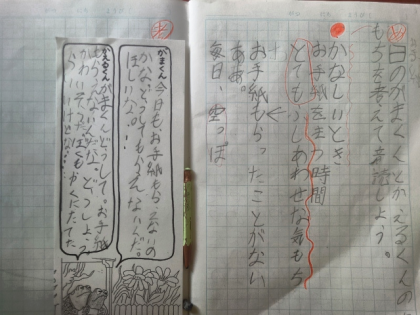 日のがまくんとかえるくんの
もちを考えて音読しよう。
かなしいとき
お手紙をまつ時間
とてもしあわせな気もち
お手紙もらったことがない
ああ。
毎日、空っぽ
がまくん 今日も、お手紙もらえないの
かな。どうしてもらえないんだ。
ほしいな。
かえるくん がまくん、どうして。お手紙
もらえないんだ。どうしよう